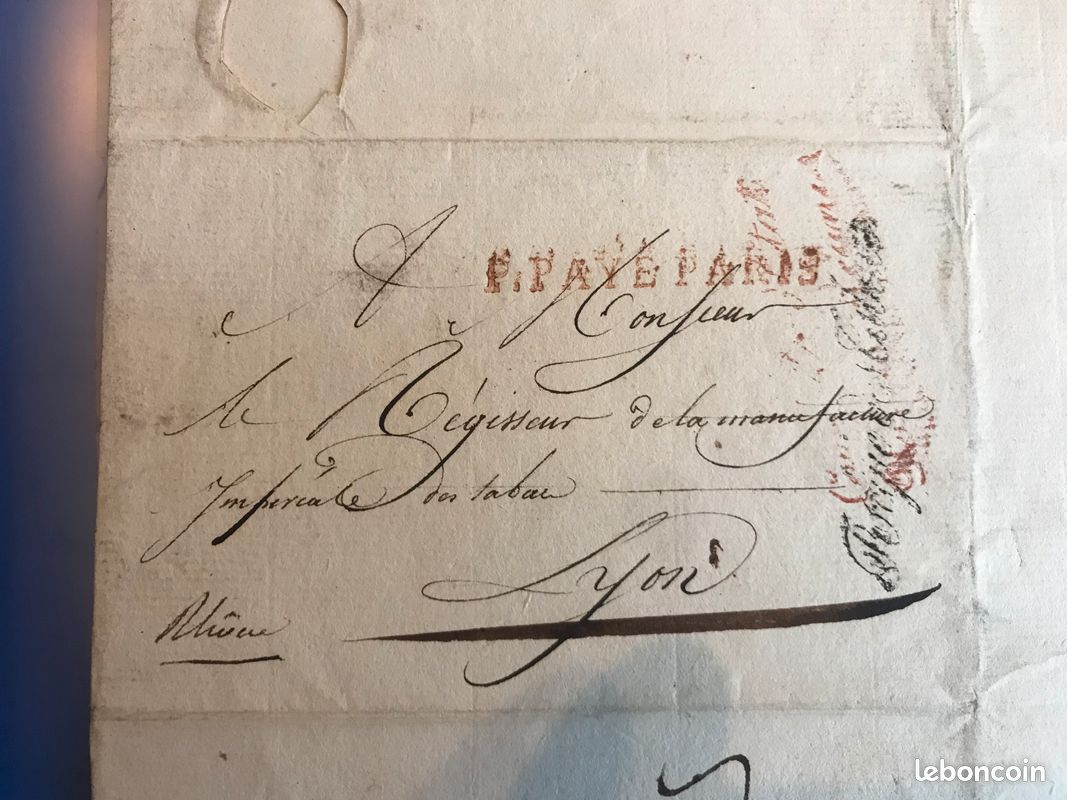 P. PAYÉ PARIS
A Monsieur
Le Régisseur de la manufacture
Impériale des tabac
Lyon
Rhône
leboncoin